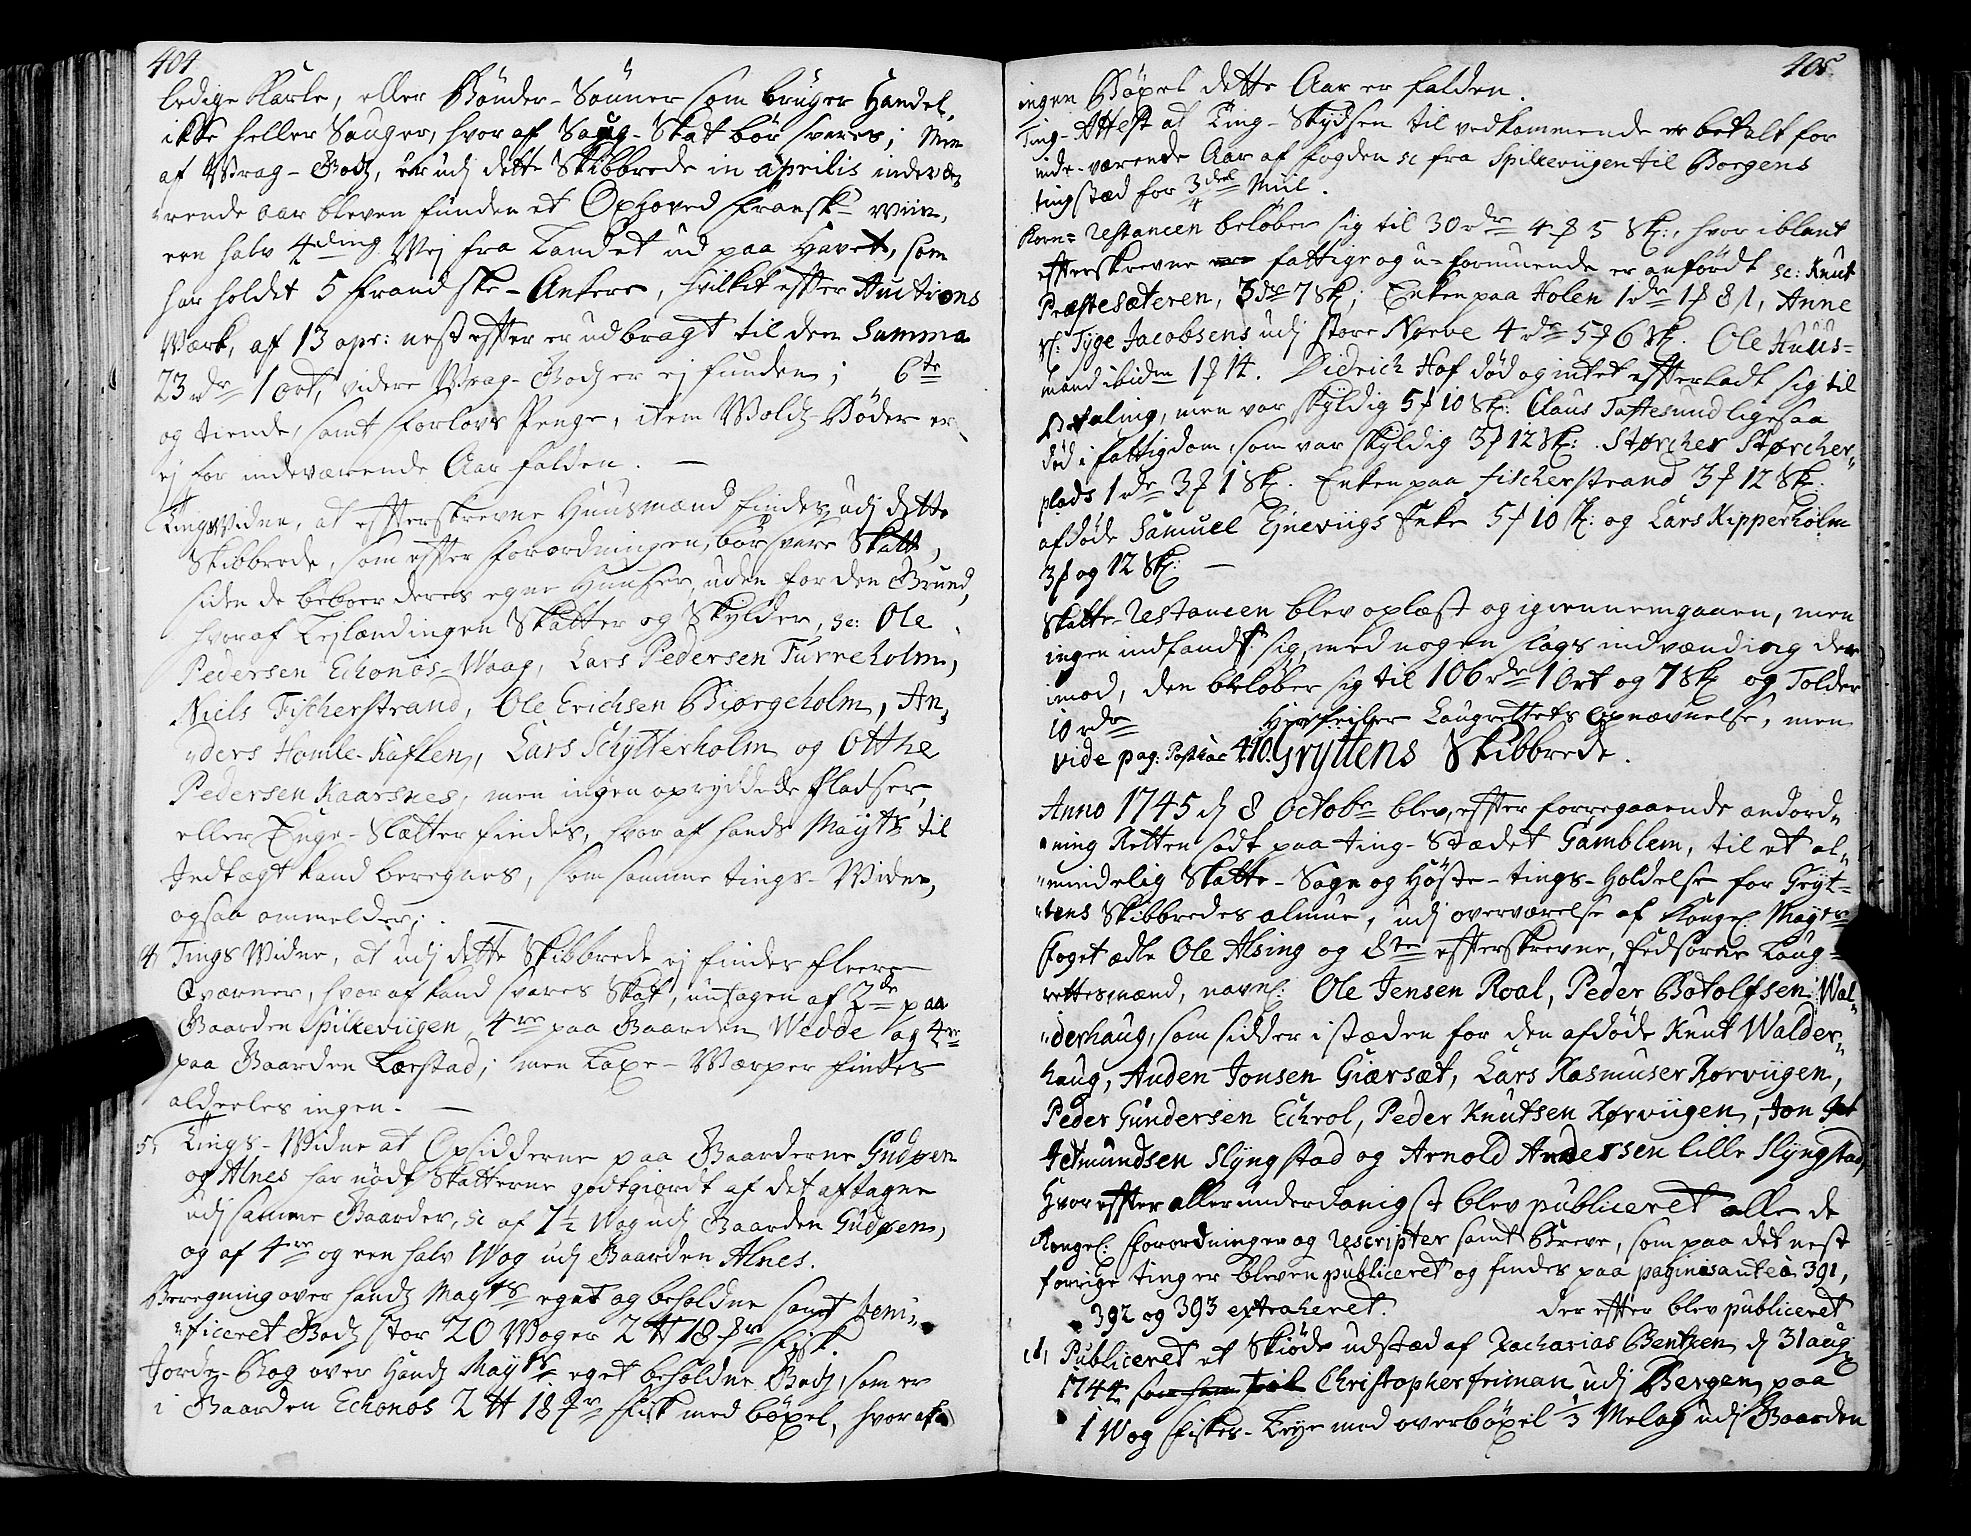 404
ledige Karle, eller Bönder-Sönner som bruger Handel,
ikke heller Sauger, hvoraf Saug-Skat bör svares; Men
af Wrag-Godz, er udj dette Skibbrede in aprilis indevæ-
rende aar bleven funden et Oxhoved Fransk Wiin,
een halv 4ding Vej fra Landet ud paa Havet, som
har holdet 5 Frandske-Ankere, hvilket efter Auctions
Werk, af 13 apr: nest efter er udbragt til den Summa
23 rdr 1 ort, videre Wrag-Godz er ej funden; 6te
og tiende, samt Forlovs Penge, item Woldz-Böder er
ej for indeværende Aar falden. —
Tings Widne, at efterskrevne Huusmænd findes udj dette
Skibbrede, som efter Forordningen, bör svare Skatt,
siden de beboer deres egne Huuser, uden for den Grund,
hvoraf Lejlændingen Skatter og Skylder, sc: Ole
Pedersen Echonös-Waag, Lars Pedersen Turreholm,
Niels Fischerstrand, Ole Erichsen Biørgeholm, An-
ders Homle-Kaflen, Lars Schytterholm og Otthe
Pedersen Kaarsnes, men ingen opryddede Pladser,
eller Enge-Slætter findes, hvoraf hands Mayts til
Indtægt kand beregnes, som samme tings-Widne,
ogsaa ommelder. —
4, Tings Widne, at udj dette Skibbrede ej findes fleere
Qværner, hvoraf kand svares Skatt, untagen af 2de paa
Gaarden Spilkeviigen, 4re paa Gaarden Wedde og 4re
paa Gaarden Lerstad; men Laxe-Werper findes
alderles ingen. —
5, Tings-Widne at Opsidderne paa Gaarderne Gudøen
og Alnes har nödt Skatterne godtgiordt af det aftagne
udj samme Gaarder, sc af 1½ Wog udj Gaarden Gudøen,
og af 4re og een halv Wog udj Gaarden Alnes.
Beregning over Handz Mayts eget og beholdne samt beni-
ficeret Godz stor 20 Woger 2 ℔ 18 mr Fisk.
Jorde-Bog over Handz Mayts eget beholdne Godz, som er
i Gaarden Echonös 2 ℔ 18 mr Fisk med böxel, hvoraf
405.
ingen Böxel dette Aar er falden.
Ting-Attest at Ting-Skydsen til vedkommende er betalt for
inde-værende Aar af Fogden sc fra Spilkeviigen til Borgens
tingstæd for 3/4 deel Miil.
Korn-Restancen beløber sig til 30 rdr 4 ƒ 5 Sk:, hvor iblant
efterskrevne fattige og u-formuende er anfördt sc: Knut
Præstesæteren, 3 dr 7 Sk; Enken paa Holen 1 dr 1 ƒ 8 ſ, Anne
Tyge Jacobsens udj store Nørve 4 dr 5 ƒ 6 Sk. Ole Huus-
mand ibidm 1 ƒ 14. Didrich Hof død og intet efterladt sig til
Betaling, men var skyldig 5 ƒ 10 Sk: Claus Taftesund ligesaa
död i fattigdom, som var skyldig 3 ƒ 12 Sk: Størcher Størcher-
plads 1 dr 3 ƒ 1 Sk. Enken paa Fischerstrand 3 ƒ 12 Sk.
afdöde Samuel Ejneviigs Enke 5 ƒ 10 Sk: og Lars Kipperholm
3 ƒ og 12 Sk: —
Skatte-Restancen blev oplæst og igiennemgaaen, men
ingen indfandt sig, med nogen slags indvending der
imod, den beløber sig til 106 rdr 1 Ort og 7 Sk og Tolder
10 rdr Her feiler Laugrettets Opnævnelse, men
vide pag: 410. Gryttens Skibbrede.
Anno 1745 d 8 Octobr blev, efter forregaaende anord-
ning Retten sadt paa ting-Stædet Gamblem, til et al-
mindelig Skatte-Sage og Høste-tings-Holdelse for Gryt-
tens Skibbredes almue, udj overværelse af Kongel Mayts
Foget ædle Ole Alsing og 8te efterskrevne, Eedsorne Laug-
rettesmænd, navnl: Ole Jensen Roal, Peder Botolfsen Wal-
derhaug, som sidder i stæden for den afdöde Knut Walder-
haug, Auden Jonsen Giærsæt, Lars Rasmuser Rørviigen,
Peder Gundersen Echrol, Peder Knutsen Rørviigen, Jon
Jetmundsen Slyngstad og Arnold Andersen lille Slyngstad,
Hvorefter allerunderdanigst blev publiceret alle de
Kongel: Forordninger og Rescripter samt Breve, som paa det nest
forrige ting er bleven publiceret og findes paa paginas antea 391,
392 og 393 extraheret. der efter blev publiceret
1, Publiceret et Skiöde udstæd af Zacharias Bentzen d 31 aug
1744 til Christopher Friman udj Bergen, paa
1 Wog Fiskes-Leye med overböxel 1/3 Melag udj Gaarden